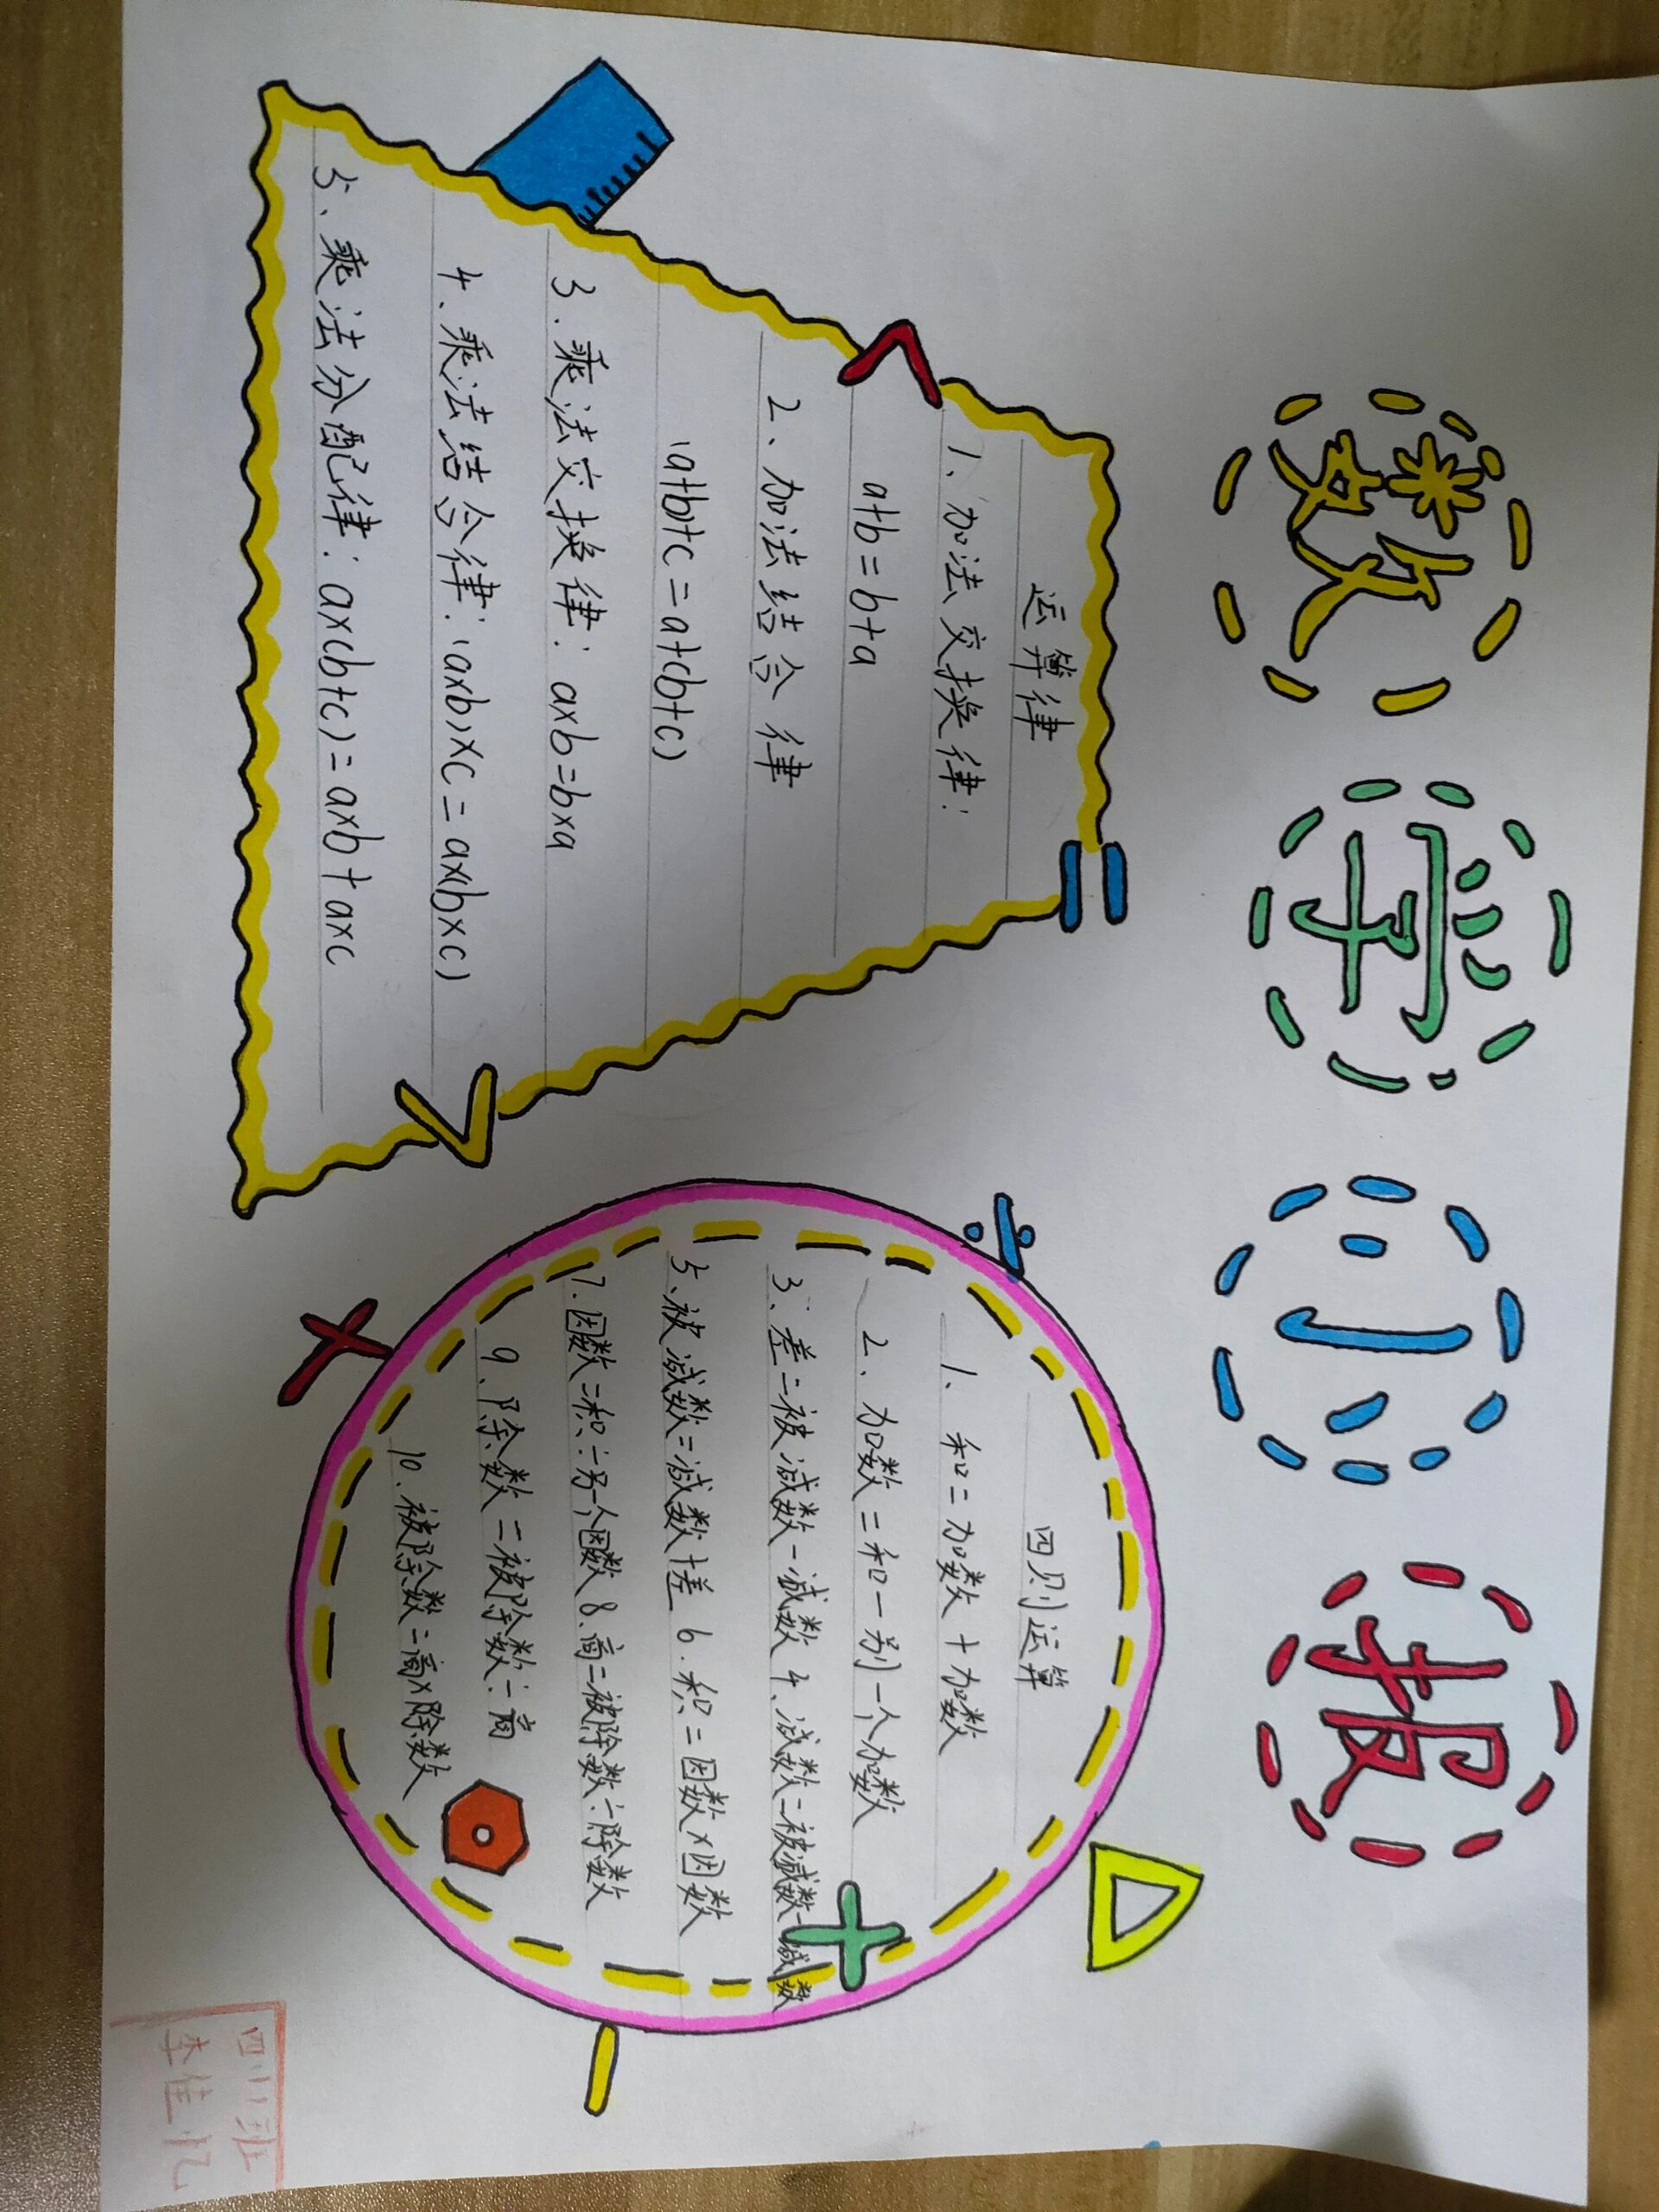 数学小报
运算律
1、加法交换律：
a+b=b+a
2、加法结合律
(a+b)+c=a+(b+c)
3.乘法交换律：a×b=b×a
4、乘法结合律：(a×b)×c=a×(b×c)
5、乘法分配律：a×(b+c)=a×b+a×c
四则运算
1、和=加数+加数
2、加数=和-另一个加数
3、差=被减数-减数 4、减数=被减数-减数
5、被减数=减数+差 6.积=因数×因数
7.因数=积÷另一个因数 8.商=被除数÷除数
9、除数=被除数÷商
10.被除数=商×除数
李佳忆